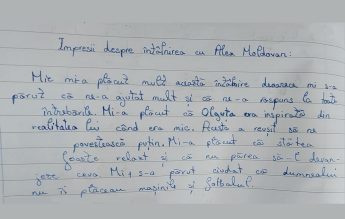 Impresii despre întâlnirea cu Alex Moldovan:
Mie mi-a plăcut mult această întâlnire deoarece mi s-a
părut că ne-a ajutat mult și că ne-a răspuns la toate
întrebările. Mi-a plăcut că Olguța era inspirată din
realitatea lui când era mic. Acesta a reușit să ne
povestească puțin. Mi-a plăcut că stătea
foarte relaxat și că nu părea să-l deran-
jeze ceva. Mi s-a părut ciudat că dumnealui
nu îi plăceau mașinile și fotbalul.